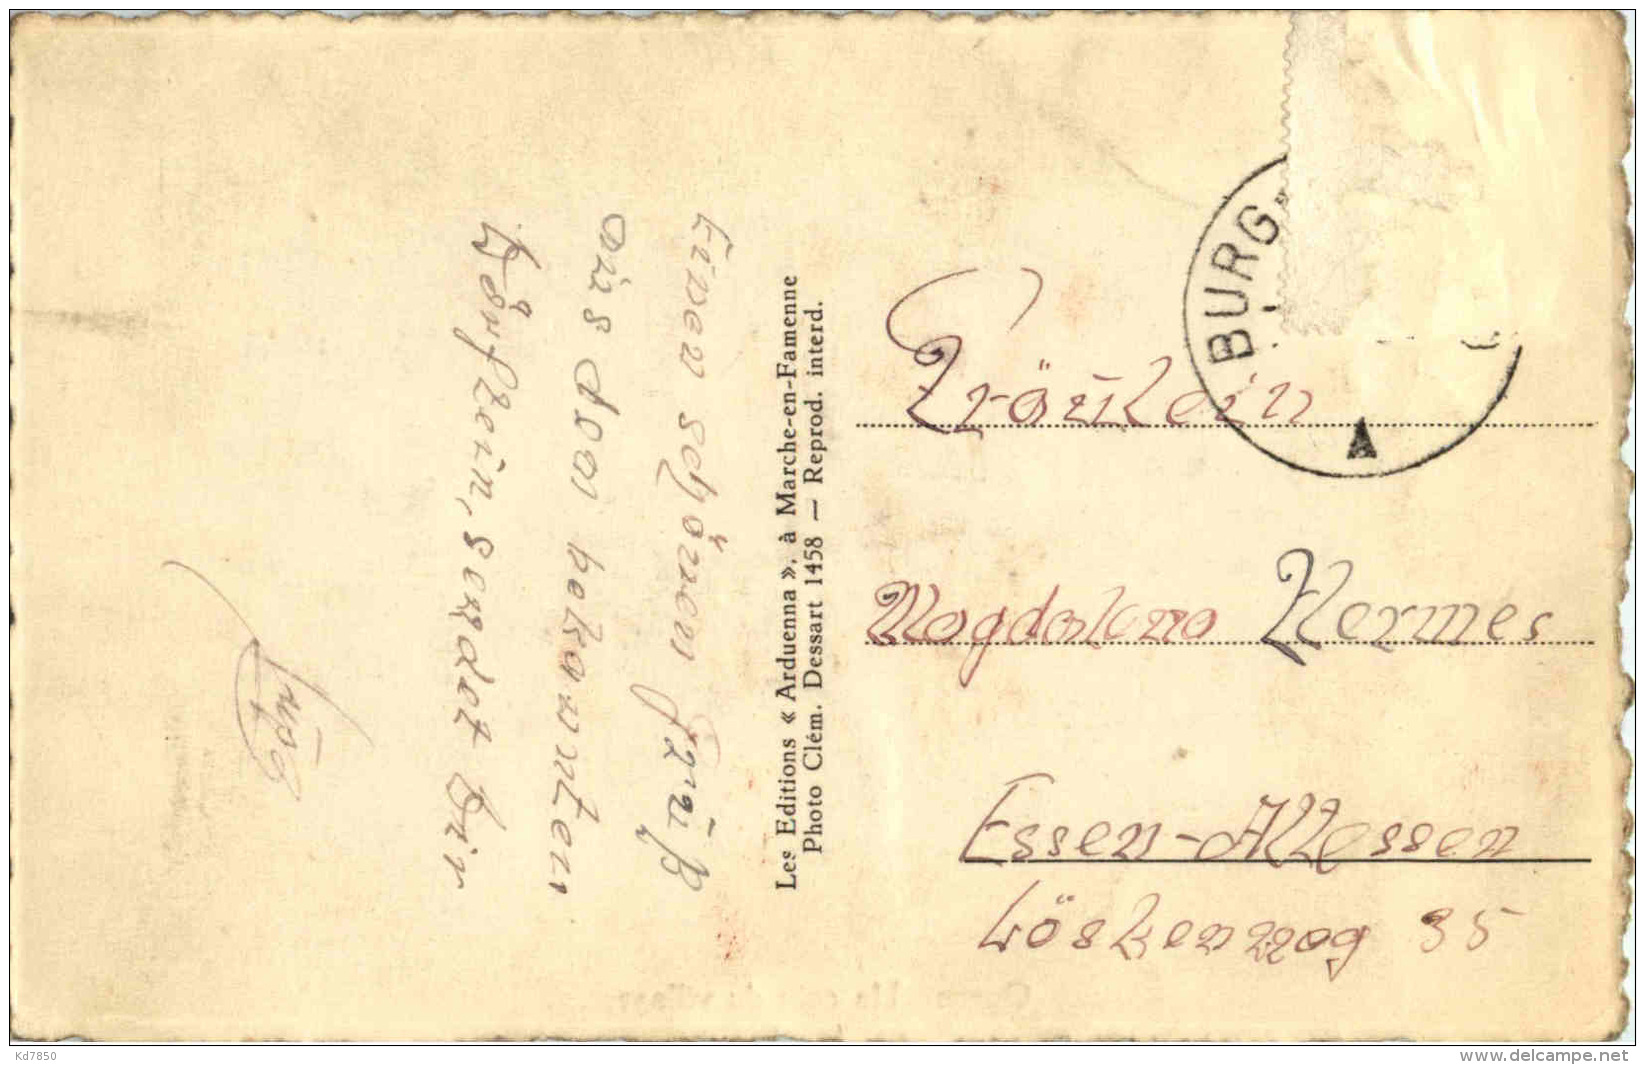 Einen schönen Gruß
aus dem bekannten
Dörflein, sendet Dir
Les Editions « Arduenna », à Marche-en-Famenne
Photo Clém. Dessart 1458 — Reprod. interd.
BURG
Fräulein
Magdalena Hermes
Essen-Altessen
35
Kd7850
www.delcampe.net